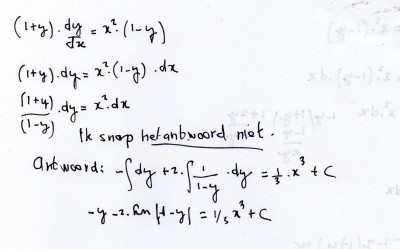 (1+y) · dy/dx = x² · (1-y)
(1+y) · dy = x² · (1-y) · dx
(1+y)/(1-y) · dy = x² · dx
Ik snap het antwoord niet.
Antwoord: -∫dy + 2 · ∫ 1/(1-y) · dy = 1/3 · x³ + C
-y - 2 · ln|1-y| = 1/3 x³ + C